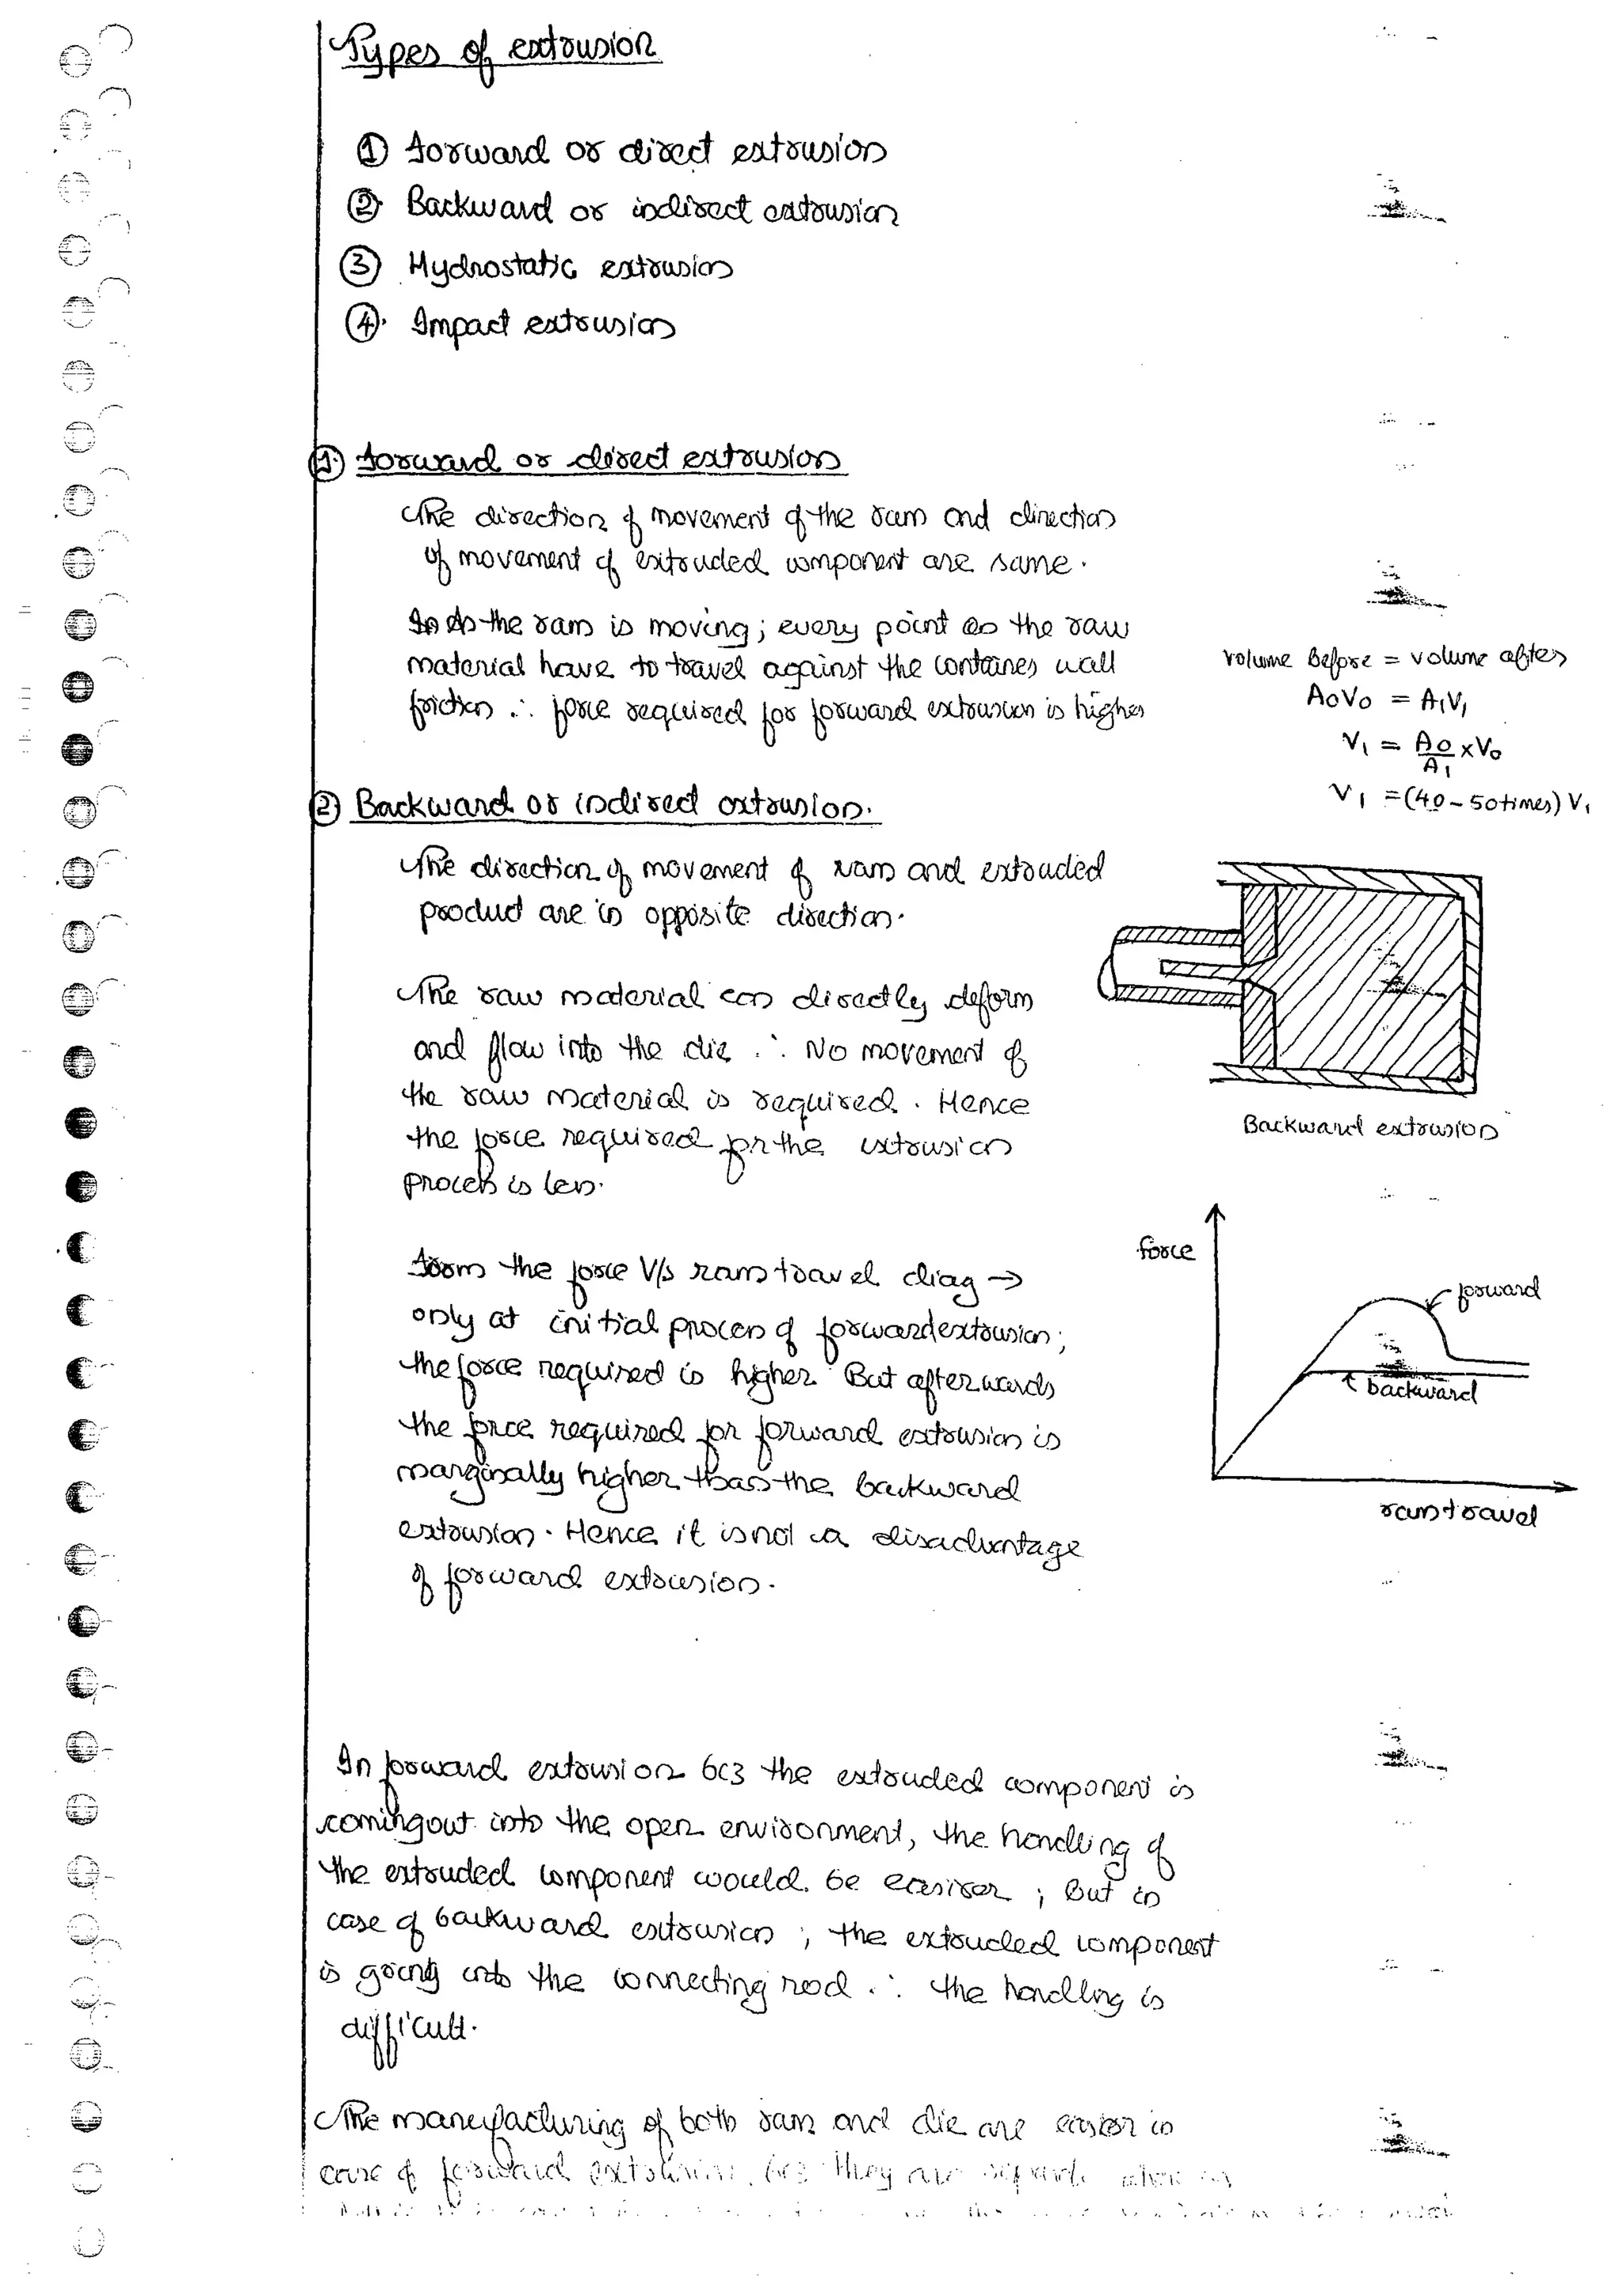 Types of extrusion
① Forward or direct extrusion
② Backward or indirect extrusion
③ Hydrostatic extrusion
④. Impact extrusion
①. Forward or direct extrusion
The direction of movement of the ram and direction
of movement of extruded component are same.
As the ram is moving; every point on the raw
material have to travel against the container wall
friction ∴ force required for forward extrusion is higher
volume Before = volume after
A0V0 = A1V1
V1 = A0/A1 x V0
V1 = (40-50 times) V1
② Backward or indirect extrusion.
The direction of movement of ram and extruded
product are in opposite direction.
The raw material can directly deform
and flow into the die ∴ No movement of
the raw material is required. Hence
the force required for the extrusion
process is less.
Backward extrusion
From the force V/s ram travel diag →
only at initial process of forward extrusion;
the force required is higher But afterwards
the force required for forward extrusion is
marginally higher than the backward
extrusion. Hence it is not a disadvantage
of forward extrusion.
force
forward
backward
ram travel
In forward extrusion bcz the extruded component is
coming out into the open environment, the handling of
the extruded component would be easier ; But in
case of backward extrusion ; the extruded component
is going into the connecting rod ∴ the handling is
difficult.
The manufacturing of both ram and die are easier in
case of forward extrusion, bcz they are